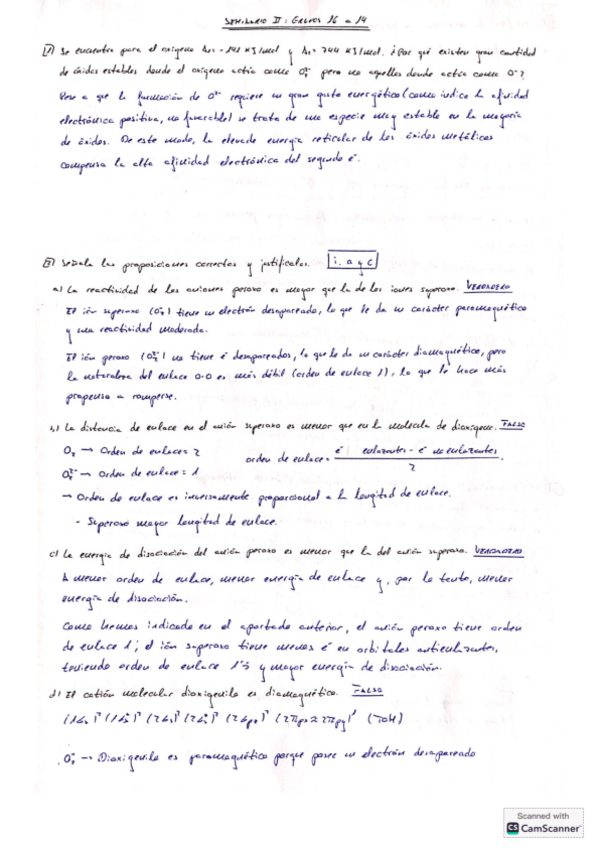 SEMINARIO II: GRUPOS 16 a 14
1) Se encuentra para el oxígeno = -141 KJ/mol y = 744 KJ/mol. ¿Por qué existen gran cantidad
de óxidos estables donde el oxígeno actúa como pero no aquellos donde actúa como O⁻?
Pese a que la formación de O²⁻ requiere un gran gasto energético (como indica la afinidad
electrónica positiva, no favorable) se trata de una especie muy estable en la mayoría
de óxidos. De este modo, la elevada energía reticular de los óxidos metálicos
compensa la alta afinidad electrónica del segundo é.
Señala las proposiciones correctas y justifícalas. i. a y c
a) La reactividad de los aniones peroxo es mayor que la de los iones superoxo. VERDADERO
El ión superoxo (O₂⁻) tiene un electrón desapareado, lo que le da un carácter paramagnético
y una reactividad moderada.
El ión peroxo (O₂²⁻) no tiene é desapareados, lo que le da un carácter diamagnético, pero
la naturaleza del enlace O-O es más débil (orden de enlace 1), lo que le hace más
propenso a romperse.
b) La distancia de enlace en el anión superoxo es menor que en la molécula de dioxígeno. FALSO
O₂ → Orden de enlace = 2 orden de enlace = é enlazantes - é no enlazantes / 2
O₂²⁻ → Orden de enlace = 1
→ Orden de enlace es inversamente proporcional a la longitud de enlace.
- Superoxo mayor longitud de enlace.
c) La energía de disociación del anión peroxo es menor que la del anión superoxo. VERDADERO
A menor orden de enlace, menor energía de enlace y, por lo tanto, menor
energía de disociación.
Como hemos indicado en el apartado anterior, el anión peroxo tiene orden
de enlace 1; el ión superoxo tiene menos é en orbitales antienlazantes,
teniendo orden de enlace 1'5 y mayor energía de disociación.
d) El catión molecular dioxigenilo es diamagnético. FALSO
(TOM)
→ Dioxigenilo es paramagnético porque posee un electrón desapareado
Scanned with
CS CamScanner